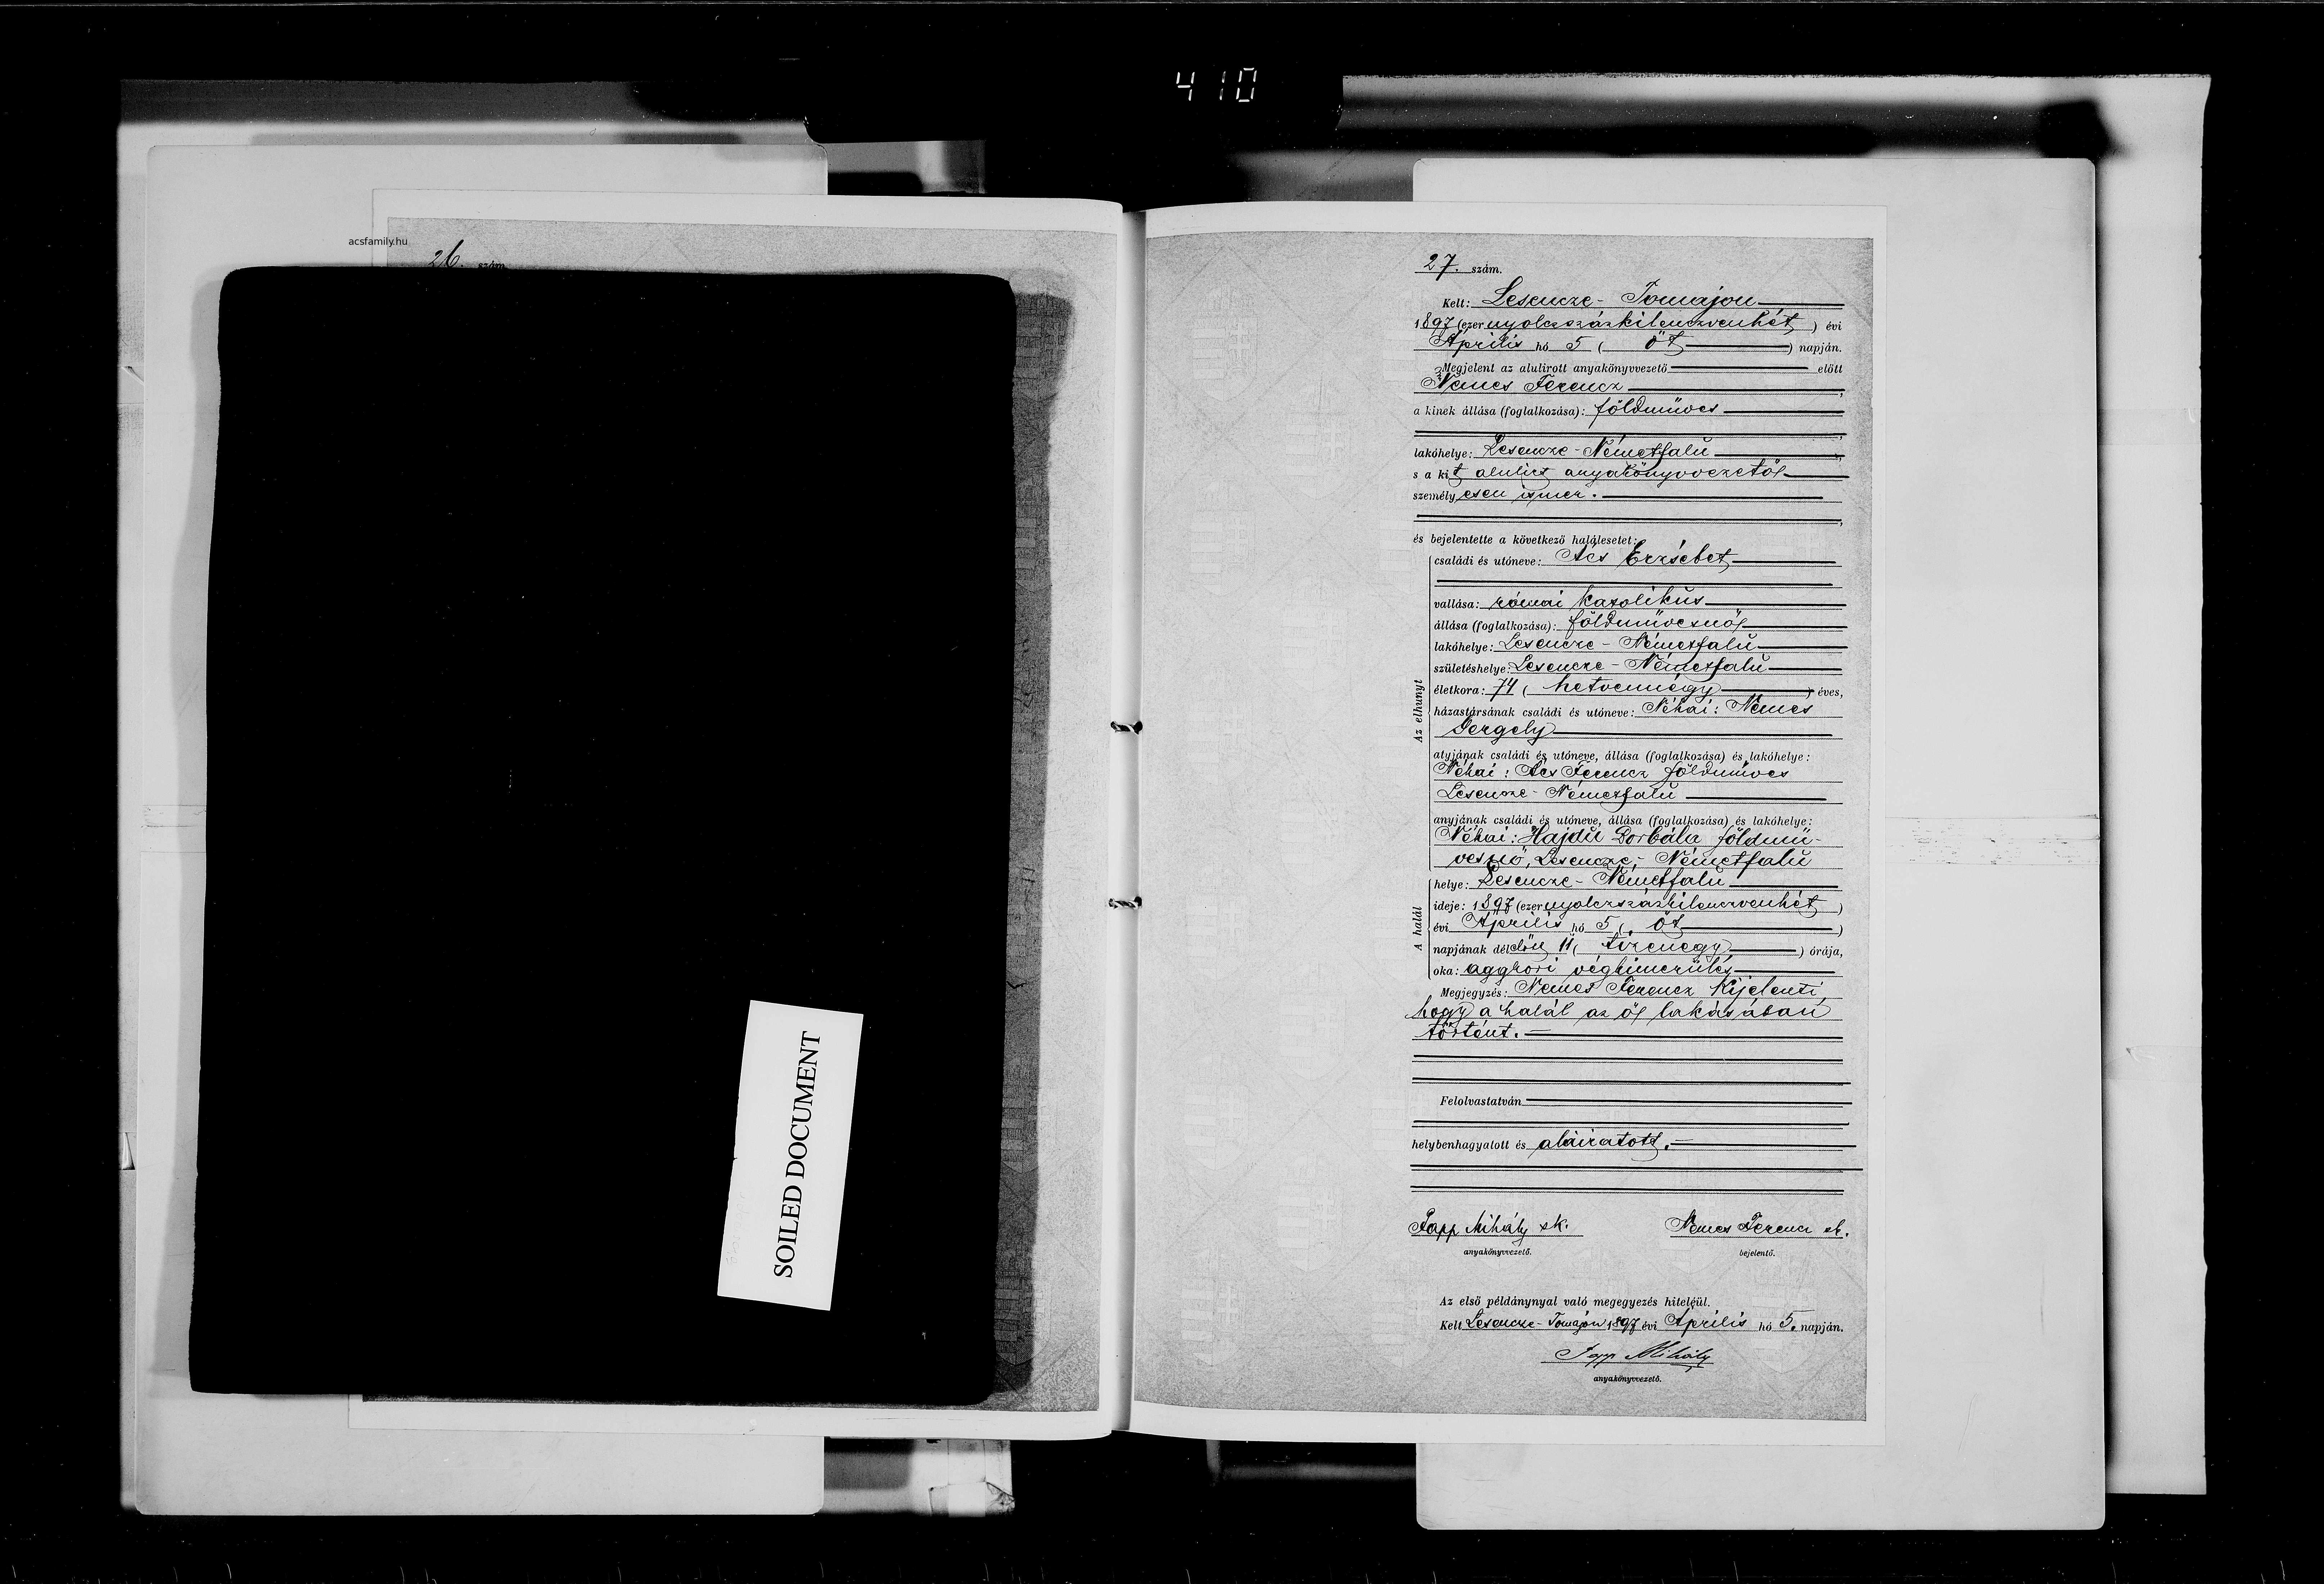 410
acsfamily.hu
26. szám.
SOILED DOCUMENT
27. szám.
Kelt: Lesencze-Tomajon
1897 (ezer nyolczszázkilenczvenhét) évi
Április hó 5 (öt) napján.
Megjelent az alulirott anyakönyvvezető előtt
Nemes Ferencz
a kinek állása (foglalkozása): földmüves
lakóhelye: Lesencze-Németfalu
s a kit alulirt anyakönyvvezető
személyesen ismer.
és bejelentette a következő halálesetet:
Az elhunyt
családi és utóneve: Ács Erzsébet
vallása: római katolikus
állása (foglalkozása): földmüvesnő
lakóhelye: Lesencze-Németfalu
születéshelye: Lesencze-Németfalu
életkora: 74 (hetvennégy) éves,
házastársának családi és utóneve: Néhai: Nemes
Gergely
atyjának családi és utóneve, állása (foglalkozása) és lakóhelye:
Néhai: Ács Ferencz földmüves
Lesencze-Németfalu
anyjának családi és utóneve, állása (foglalkozása) és lakóhelye:
Néhai: Hajdu Borbála földmü-
vesnő, Lesencze-Németfalu
A halál
helye: Lesencze-Németfalu
ideje: 1897 (ezer nyolczszázkilenczvenhét)
évi Április hó 5 (öt)
napjának délelőtt 11 (tizenegy) órája,
oka: aggkori végkimerülés
Megjegyzés: Nemes Ferencz kijelenti,
hogy a halál az ő lakásában
történt.
Felolvastatván
helybenhagyatott és aláiratott.
Papp Mihály sk.
anyakönyvvezető.
Nemes Ferencz sk.
bejelentő.
Az első példánynyal való megegyezés hiteléül.
Kelt Lesencze-Tomajon 1897 évi Április hó 5. napján.
Papp Mihály
anyakönyvvezető.